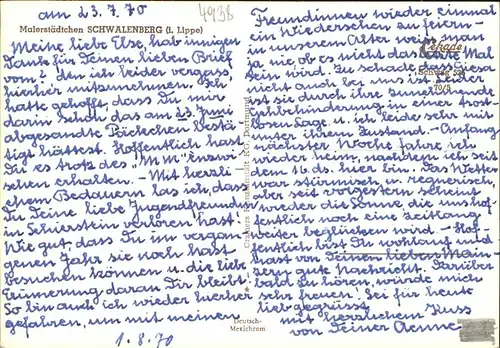 am 23.7.70
4958
Malerstädtchen SCHWALENBERG (i. Lippe)
Meine liebe Else, hab innigen
Dank für Deinen lieben Brief
vom ? den ich leider vergass,
hierher mitzunehmen. Ich
hatte gehofft, dass Du mir
darin schon das am 23. Juni
abgesandte Päckchen bestä-
tigt hättest. Hoffentlich hast
Du es trotz des "MM" inzwi-
schen erhalten. - Mit herzli-
chem Bedauern las ich, dass
Du Deine liebe Jugendfreundin
in Schierstein verloren hast!
Wie gut, dass Du im vergan-
genen Jahr sie noch hast
besuchen können u. die liebe
Erinnerung daran Dir bleibt.
So bin auch ich wieder hierher
gefahren, um mit meinen
1.8.70
Freundinnen wieder einmal
ein Wiedersehen zu feiern -
in unserem Alter weiss man
ja nie ob es nicht das letzte Mal
sein wird. Zu schade dass Giesa
nicht auch bei uns ist. Leider
ist sie durch ihre zunehmende
Gehbehinderung in einer trost-
losen Lage u. ich leide sehr mit
unter ihrem Zustand. - Anfang
nächster Woche fahre ich
wieder heim, nachdem ich seit
dem 16. ds. hier bin. Das Wetter
war stürmisch u. regnerisch,
aber seit vorgestern scheint
wieder die Sonne die uns hof-
fentlich noch eine Zeitlang
weiter beglücken wird. - Hof-
fentlich bist Du wohlauf und
hast von Deinen lieben Main-
zern gute Nachricht. Darüber
bald zu hören, würde mich
sehr freuen! Sei für heute
lieb gegrüsst
mit herzlichem Kuss
von Deiner Aenne
Cekade
Schweg 52
70/5
Cramers Kunstanstalt KG, Dortmund
Deutsch-
Mexichrom